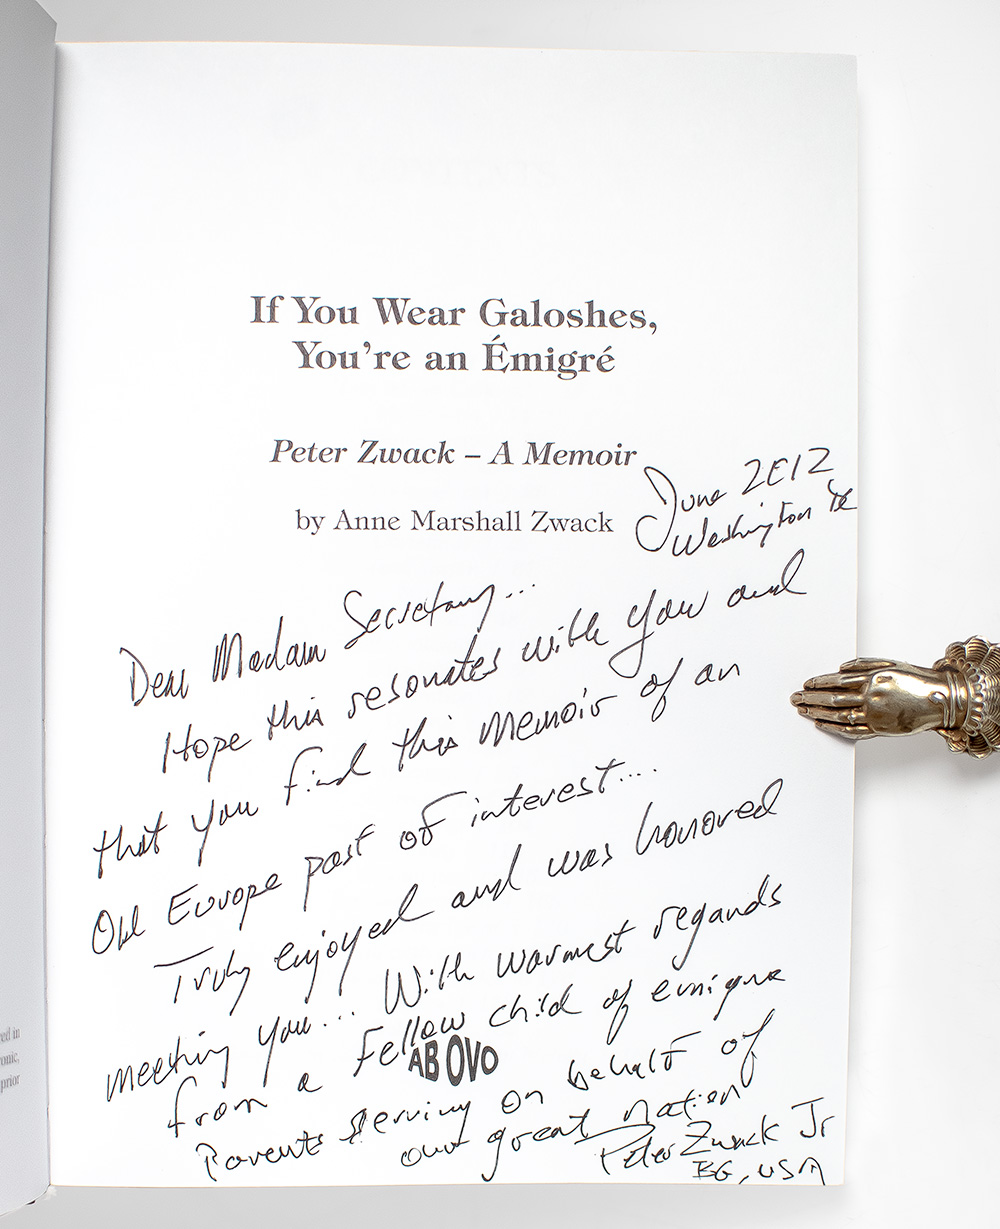 If You Wear Galoshes,
You're an Émigré
Peter Zwack – A Memoir
by Anne Marshall Zwack
June 2012
Washington DC
Dear Madam Secretary...
Hope this resonates with you and
that you find this memoir of an
Old Europe past of interest....
Truly enjoyed and was honored
meeting you... With warmest regards
from a Fellow child of emigre
Parents serving on behalf of
our great nation
Peter Zwack Jr
BG, USA
AB OVO
ed in
onic,
prior